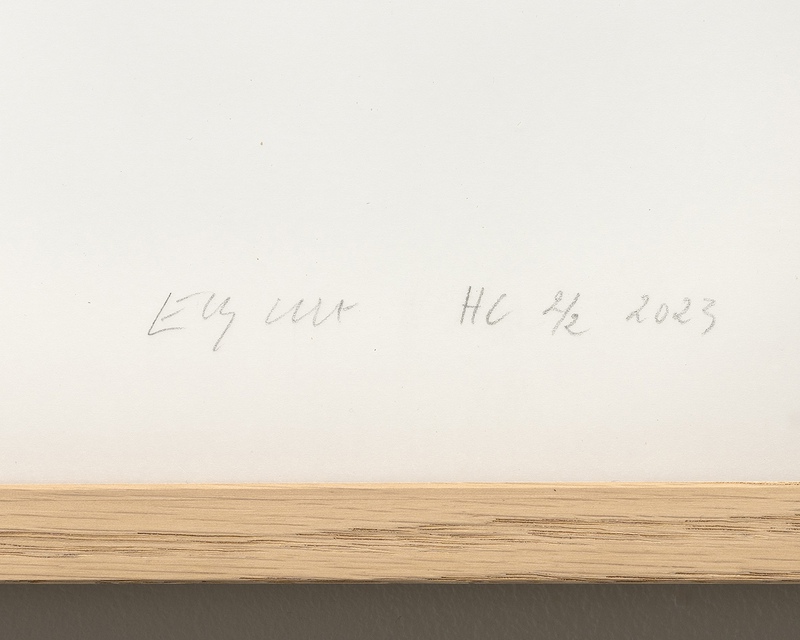 Elly HC 2/2 2023